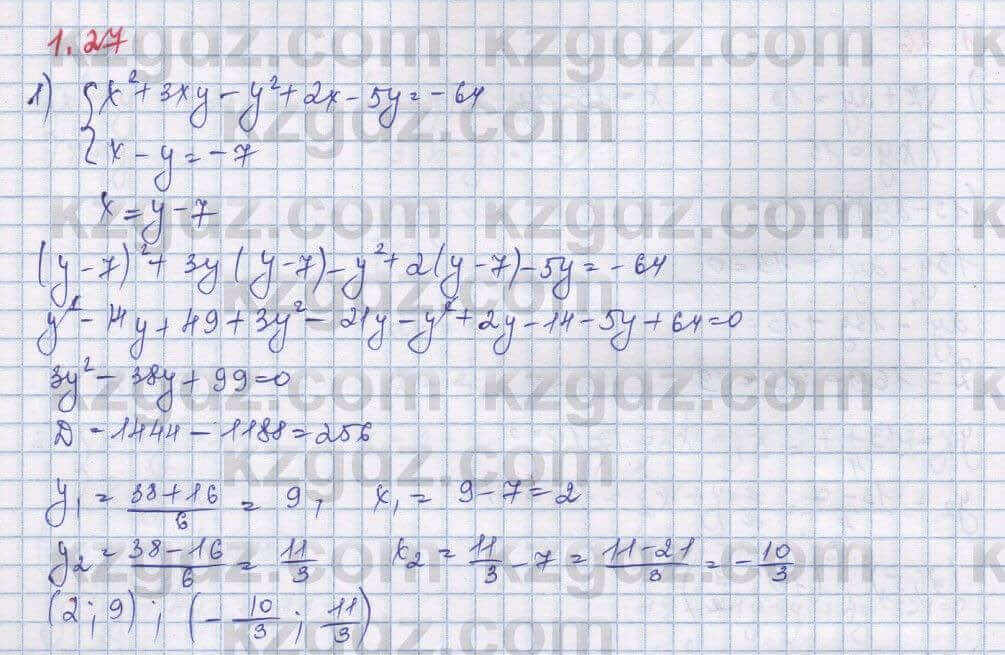 1.27
1) { x² + 3xy - y² + 2x - 5y = -64
{ x - y = -7
x = y - 7
(y - 7)² + 3y(y - 7) - y² + 2(y - 7) - 5y = -64
y² - 14y + 49 + 3y² - 21y - y² + 2y - 14 - 5y + 64 = 0
3y² - 38y + 99 = 0
D = 1444 - 1188 = 256
y₁ = (38 + 16)/6 = 9, x₁ = 9 - 7 = 2
y₂ = (38 - 16)/6 = 11/3 x₂ = 11/3 - 7 = (11 - 21)/3 = -10/3
(2; 9); (-10/3; 11/3)
kzgdz.com